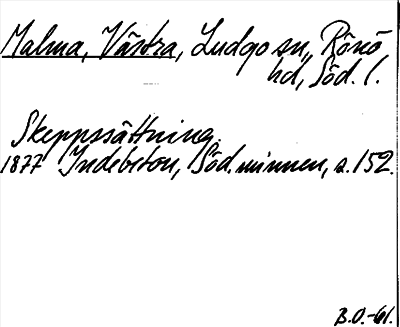 Malma, Västra, Ludgo sn, Rönö
hd, Söd. l.
Skeppssättning.
1877 Indebetou, Söd. minnen, s. 152.
B.O.-61.